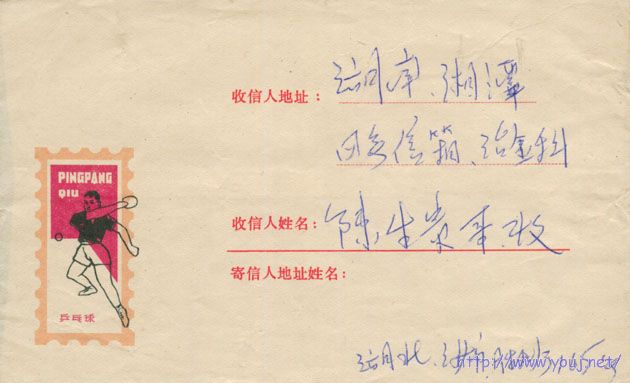 收信人地址：湖南、湘潭
信箱、冶金科
PINGPANG
QIU
收信人姓名：陈生贵
寄信人地址姓名：
乒乓球
湖北、
http://www.ypuj.net/